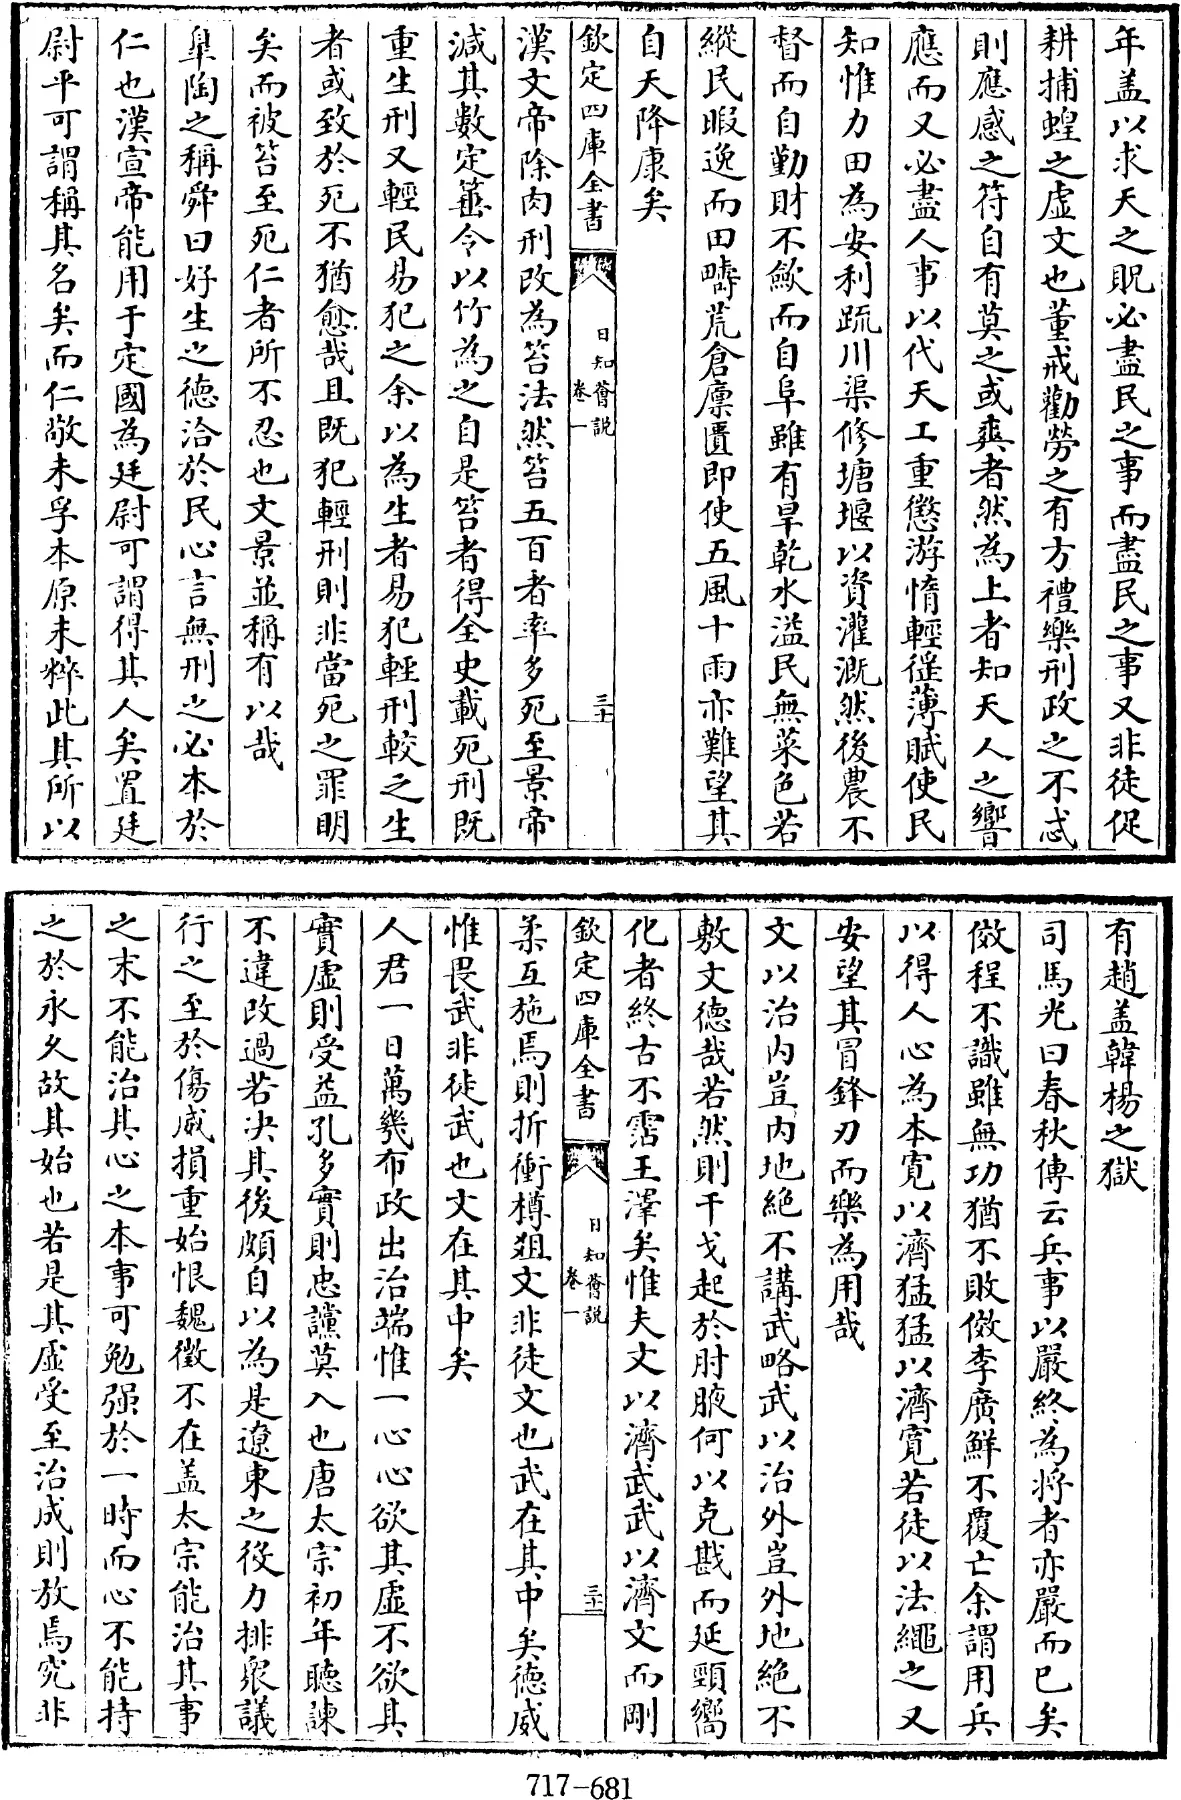 年盖以求天之貺必盡民之事而盡民之事又非徒促
耕捕蝗之虛文也董戒勸勞之有方禮樂刑政之不忒
則應感之符自有莫之或爽者然為上者知天人之響
應而又必盡人事以代天工重懲游惰輕徭薄賦使民
知惟力田為安利疏川渠修塘堰以資灌溉然後農不
督而自勤財不歛而自阜雖有旱乾水溢民無菜色若
縱民暇逸而田疇荒倉廪匱即使五風十雨亦難望其
自天降康矣
欽定四庫全書
日知薈說
卷一
三十
漢文帝除肉刑改為笞法然笞五百者率多死至景帝
減其數定箠令以竹為之自是笞者得全史載死刑既
重生刑又輕民易犯之余以為生者易犯輕刑較之生
者或致於死不猶愈哉且既犯輕刑則非當死之罪明
矣而被笞至死仁者所不忍也文景並稱有以哉
臯陶之稱舜曰好生之德洽於民心言無刑之必本於
仁也漢宣帝能用于定國為廷尉可謂得其人矣置廷
尉平可謂稱其名矣而仁敬未孚本原未粹此其所以
有趙盖韓楊之獄
司馬光曰春秋傳云兵事以嚴終為將者亦嚴而已矣
傚程不識雖無功猶不敗傚李廣鮮不覆亡余謂用兵
以得人心為本寛以濟猛猛以濟寛若徒以法繩之又
安望其冒鋒刃而樂為用哉
文以治内豈内地絶不講武略武以治外豈外地絶不
敷文德哉若然則干戈起於肘腋何以克戡而延頸嚮
化者終古不霑王澤矣惟夫文以濟武武以濟文而剛
欽定四庫全書
日知薈説
卷一
三十一
柔互施焉則折衝樽爼文非徒文也武在其中矣德威
惟畏武非徒武也文在其中矣
人君一日萬幾布政出治端惟一心心欲其虛不欲其
實虛則受益孔多實則忠讜莫入也唐太宗初年聽諫
不違改過若决其後頗自以為是遼東之役力排衆議
行之至於傷威損重始恨魏徵不在盖太宗能治其事
之末不能治其心之本事可勉强於一時而心不能持
之於永久故其始也若是其虛受至治成則放焉究非
717-681